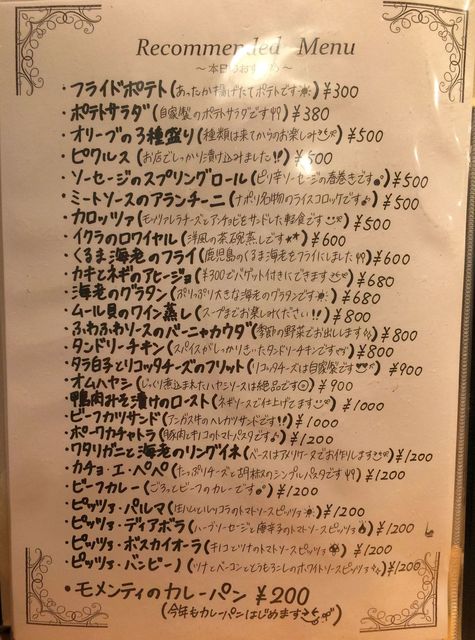 Recommended Menu
～本日のおすすめ～
・フライドポテト(あったか揚げたてポテトです) ¥300
・ポテトサラダ(自家製のポテトサラダです) ¥380
・オリーブの3種盛り(種類は来てからのお楽しみ) ¥500
・ピクルス(お店でしっかり漬け込みました!!) ¥500
・ソーセージのスプリングロール(ピリ辛ソーセージの春巻きです) ¥500
・ミートソースのアランチーニ(ナポリ名物のライスコロッケです♪) ¥500
・カロッツァ(モッツァレラチーズとアンチョビをサンドした軽食です) ¥500
・イクラのロワイヤル(洋風の茶碗蒸しです★★) ¥600
・くるま海老のフライ(鹿児島のくるま海老をフライにしました) ¥600
・カキとネギのアヒージョ(¥300でバゲット付きにできます) ¥680
・海老のグラタン(ぷりっぷり大きな海老のグラタンです) ¥680
・ムール貝のワイン蒸し(スープまでお楽しみください!!) ¥800
・ふわふわソースのバーニャカウダ(季節の野菜でお出しします) ¥800
・タンドリーチキン(スパイスがしっかりきいたタンドリーチキンです) ¥800
・タラ白子とリコッタチーズのフリット(リコッタチーズは自家製です) ¥900
・オムハヤシ(じっくり煮込まれたハヤシソースは絶品です) ¥900
・鴨肉みそ漬けのロースト(ネギソースで仕上げてます) ¥1000
・ビーフカツサンド(アンガス牛のヘレカツサンドです!!) ¥1000
・ポークカチャトラ(豚肉とキノコのトマトパスタです♪) ¥1200
・ワタリガニと海老のリングイネ(ベースはアメリケーヌでお作りします) ¥1200
・カチョ・エ・ペペ(たっぷりチーズと胡椒のシンプルパスタです) ¥1200
・ビーフカレー(ごろっとビーフのカレーです) ¥1200
・ピッツァ・パルマ(生ハムとルッコラのトマトソースピッツァ) ¥1200
・ピッツァ・ディアボラ(ハーブソーセージと唐辛子のトマトソースピッツァ) ¥1200
・ピッツァ・ボスカイオーラ(キノコとツナのトマトソースピッツァ) ¥1200
・ピッツァ・バンビーノ(ツナとベーコンととうもろこしのホワイトソースピッツァ) ¥1200
・モメンティのカレーパン ¥200
(今年もカレーパンはじめます)